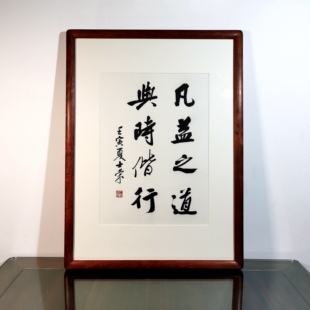 凡益之道
與時偕行
壬寅夏士常